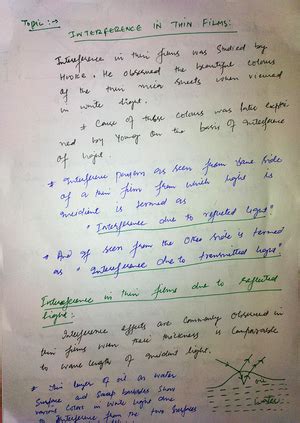 Topic :→
INTERFERENCE IN THIN FILMS:
Interference in thin films was studied by
Hooke. He observed the beautiful colours
of the thin mica sheets when viewed
in white light.
* Cause of these colours was later explai
ned by Young on the basis of interference
of light.
* Interference pattern as seen from same side
of a thin film from which light is
incident is termed as
"Interference due to reflected light"
* And if seen from the other side is termed
as "Interference due to transmitted light."
Interference in thin films due to reflected
light:
Interference effects are commonly observed in
thin films when their thickness is comparable
to wave length of incident light.
* Thin layer of oil on water
Surface and soap bubbles show
various colors in white light due
to interference from the two surfaces
oil
water